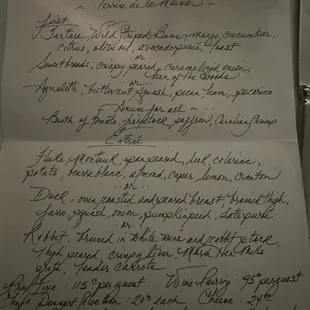 ~ Terrine de la Maison ~
First
Tartare, Wild Striped Bass - mango, cucumber,
citrus, olive oil, avocado purée, toast
or
Sweetbreads, crispy seared, caramelized onion,
Hen of the Woods
or
Agnolotti, butternut squash, pecan, ham, pecorino
~ Amuse for all ~
Broth of tomato, saffron, Carolina Shrimp
Entrée
Fluke, Montauk, pan seared, leek, celeriac,
potato, beurre blanc, almond, caper, lemon, crouton
or
Duck, oven roasted and seared breast, braised thigh,
farro, squash, onion, pumpkinseed, date purée
or
Rabbit, braised in white wine and rabbit stock,
thigh seared, crispy liver
grits
Prix Fixe : 115 per guest Wine Pairing : 95 per guest
Dessert : 20 each Cheese : 24